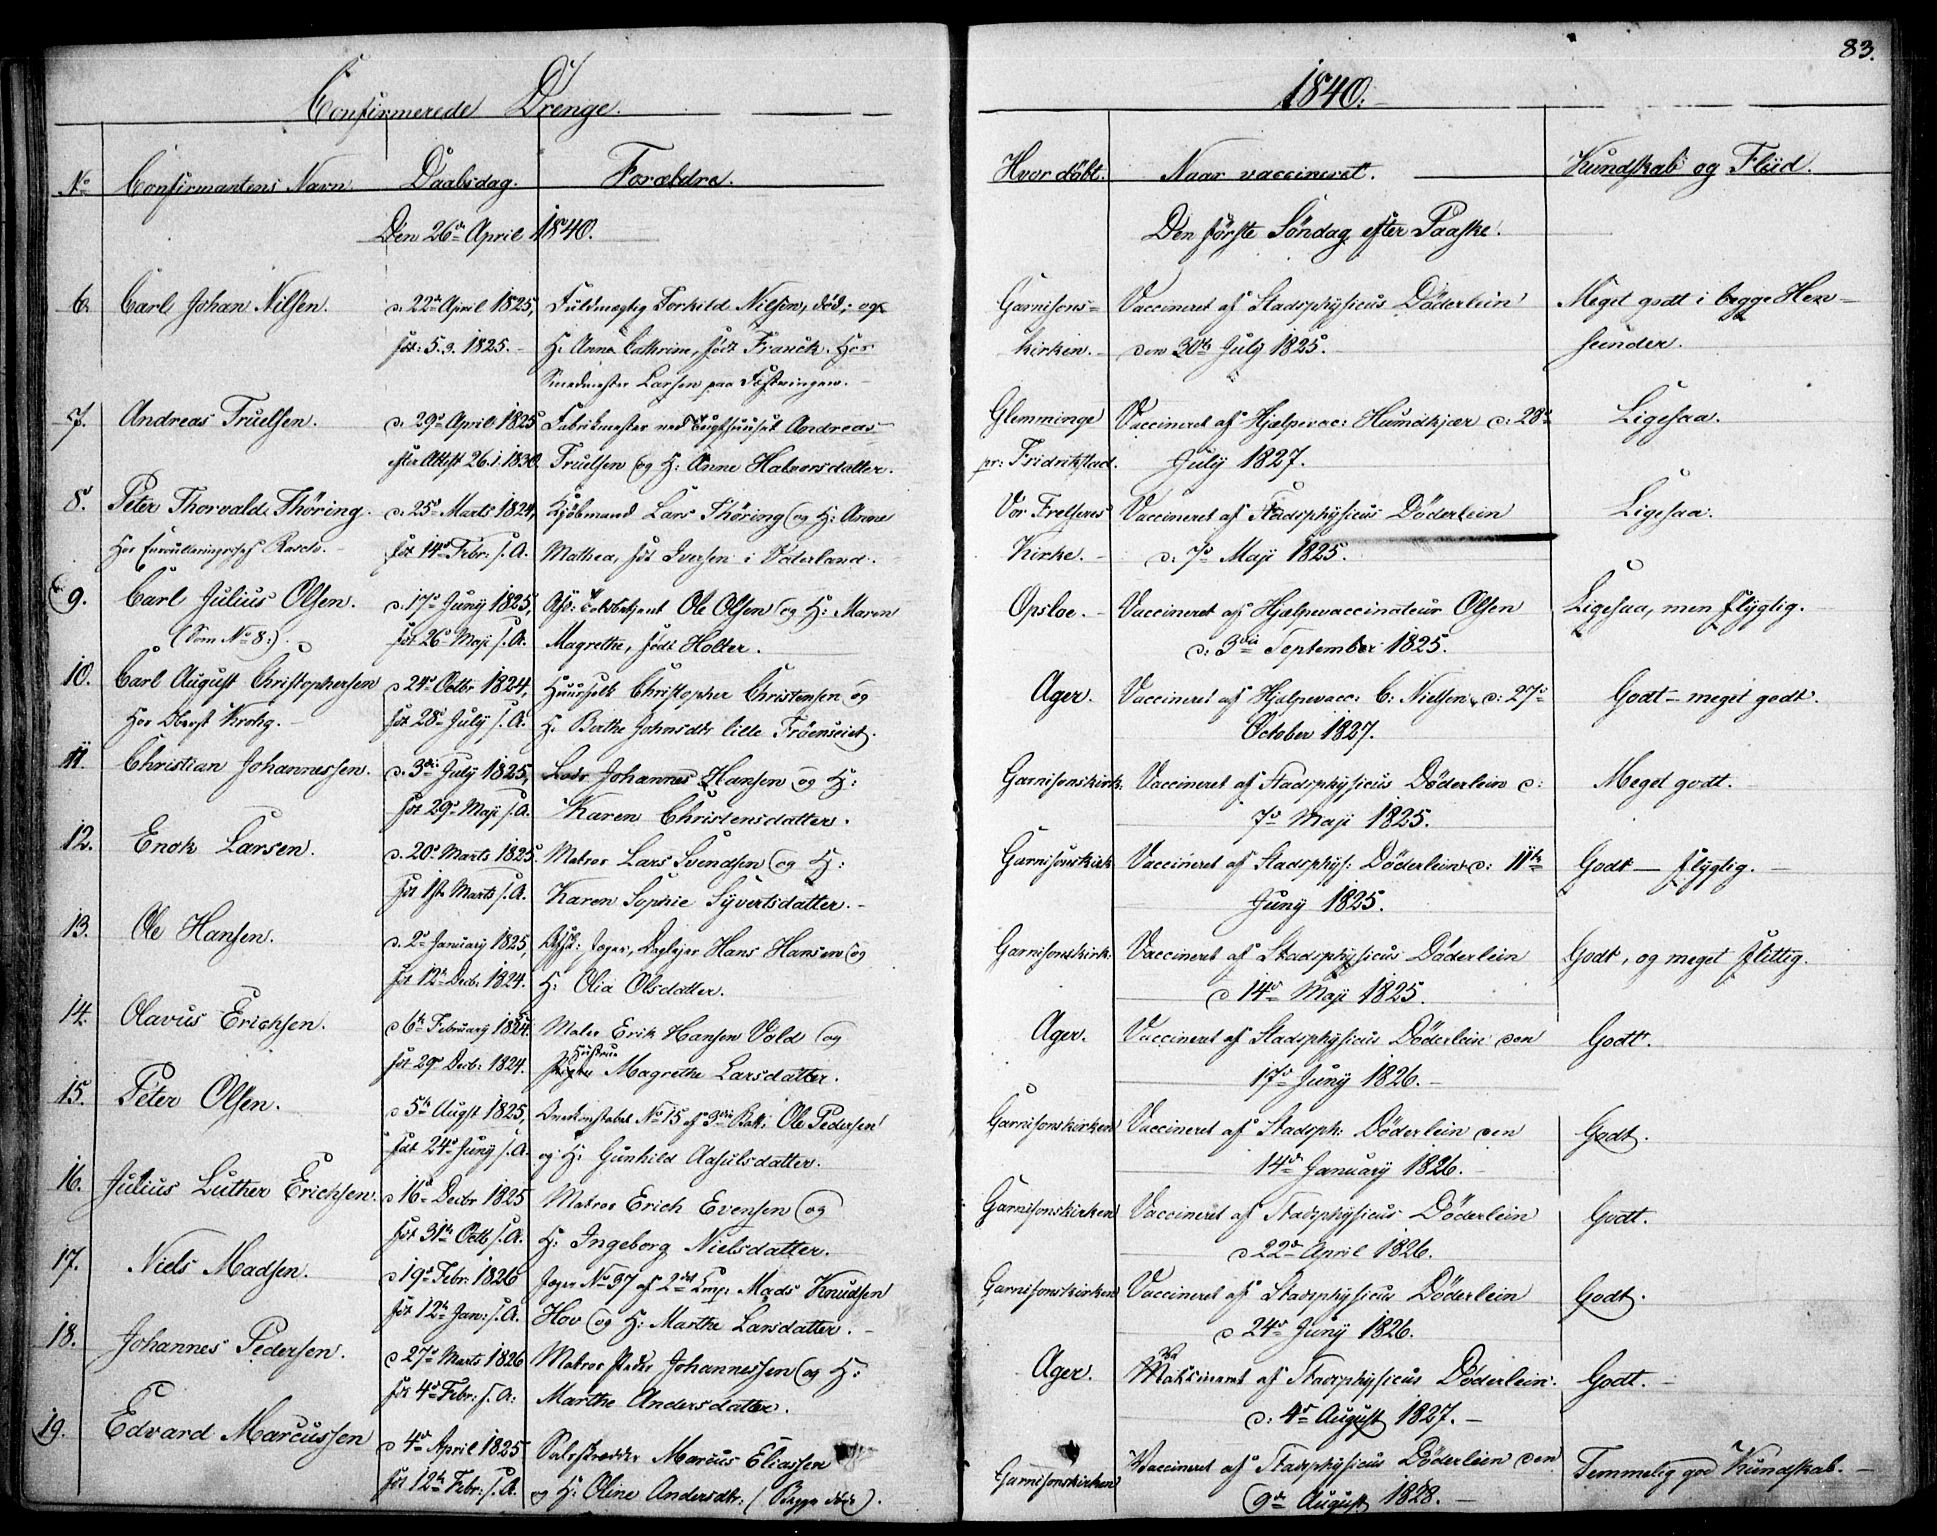 Confirmerede Drenge.
No Confirmantens Navn. Daabsdag. Forældre.
Den 26de April 1840.
6. Carl Johan Nilsen. d. 22de April 1825, Fuldmægtig Torkild Nilsen, død, og
fød: 5.3.1825. H. Anna Cathrine, født Franck. Hos
Smedmester Larsen paa Fæstningen.
7. Andreas Truelsen. d. 29de April 1825 Fabrikmester ved Andreas
efter Attest 26.1.1830. Truelsen og H: Anne Halvorsdatter.
8. Peter Thorvald Thöring. d. 25de Marts 1824, Kjöbmand Lars Thöring og H: Anne
Hos Rasch. föt 14de Febr: s.A. Mathea, föt Iversen i Vaterland.
9. Carl Julius Olsen. d. 17de Juny 1825, Afsk: Ole Olsen og H: Maren
(Som No 8:). föt 26de Maji s.A. Magrethe, födt Holter.
10. Carl August Christophersen d. 24de Octbr 1824, Christopher Christensen og
Hos Oberst Krohg. föt 28de July s.A. H. Berthe Johnsdtr lille Fröenseiet.
11 Christian Johannessen. d. 3die July 1825, Johannes Hansen og H:
föt 29de Maji s.A. Karen Christensdatter.
12. Enok Larsen. d. 20de Marts 1825. Matros Lars Svendsen og H:
föt 1ste Marts s.A. Karen Sophie Syvertsdatter.
13. Ole Hansen. d. 2de January 1825, Afsk: Jæger, Hans Hansen og
föt 12te Decbr 1824. H: Olia Olsdatter.
14. Olavus Erichsen. d 6te February 1825. Erik Hansen Vold og
föt 29de Decbr: 1824. Hustrue Magrethe Larsdatter.
15. Peter Olsen. d 5te Augst 1825, No 15 af 3die Batt: Ole Pedersen
föt 24de Juny s.A. og H: Gunhild Aasulsdatter.
16. Julius Luther Erichsen. d 16de Decbr 1825 Matros Erich Evensen og
föt 31te Octb s.A. H: Ingeborg Nielsdatter.
17. Niels Madsen. d 19de Febr: 1826 Jæger No 37 af 2det Comp: Mads Knudsen
föt 12te Jan: s.A. Hov og H: Marthe Larsdatter.
18. Johannes Pedersen. d 27de Marts 1826 Matros Peder Johannessen og H:
föt 4de Febr: s.A: Marthe Andersdatter.
19. Edvard Marcussen d 4de April 1825 Marcus Eliassen
föt 12te Febr: s.A. og H: Oline Andersdtr: (Begge døde).
83.
1840.
Hvor döbt. Naar vaccineret. Kundskab og Fliid.
Den förste Söndag efter Paaske.
Garnisons= Vaccineret af Stadsphysicus Döderlein Meget godt i begge Hen=
kirken. den 30te July 1825. seender.
Glemminge Vaccineret af Hjælpevac: Humdkjær d: 28de Ligesaa.
pr: Fridrikstad. July 1827.
Vor Frelseres Vaccineret af Stadsphysicus Döderlein Ligesaa.
Kirke. d: 7de Maji 1825.
Opsloe. Vaccineret af Hjælpevaccinateur Olsen Ligesaa, men flygtig.
d: 3die September 1825.
Ager. Vaccineret af Hjælpevacc: C: Nielsen, d: 27de Godt = meget godt.
October 1827.
Garnisonskirk. Vaccineret af Stadsphysicus Döderlein d: Meget godt.
7de Maji 1825.
Garnisonskirk Vaccineret af Stadsphys: Döderlein d: 11te Godt — flygtig.
Juny 1825.
Garnisonskirk. Vaccineret af Stadsphysicus Döderlein Godt, og meget flittig.
d 14de Maji 1825.
Ager. Vaccineret af Stadsphysicus Döderlein den Godt.
17de Juny 1826.
Garnisonskirken Vaccineret af Stadsph: Döderlein den Godt.
14de January 1826.
Garnisonskirken Vaccineret af Stadsphysicus Döderlein Godt.
d 22de April 1826.
Garnisonskirken Vaccineret af Stadsphysicus Döderlein Godt.
d 24de Juny 1826.
Ager. Vaksineret af Stadsphysicus Döderlein. Godt.
d: 4de August 1827.
Garnisonskirken Vaccineret af Stadsphysicus Döderlein den Temmelig god Kundskab.
9de August 1828.